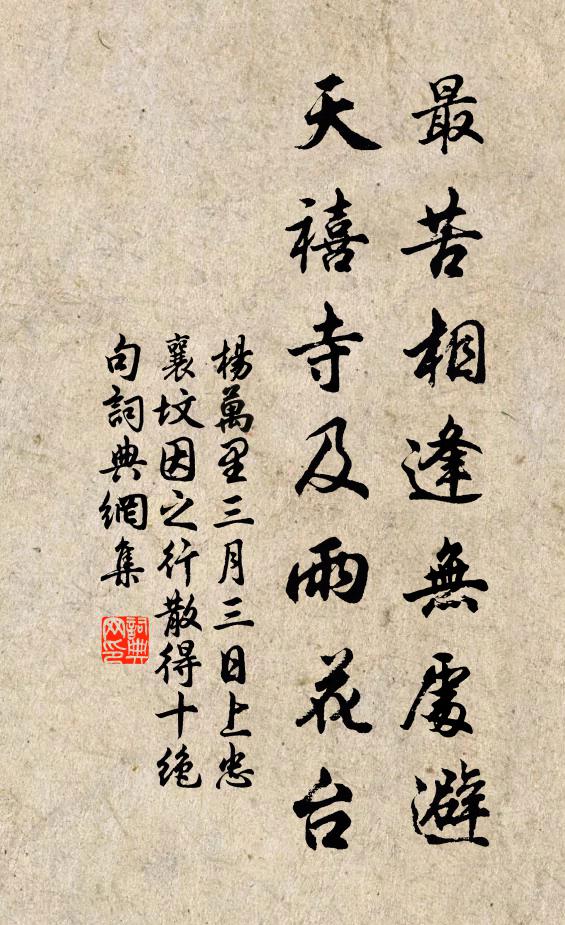 最苦相逢無處避
天禧寺及雨花台
楊萬里三月三日上忠
襄坟因之行散得十絶
句詞典網集
詞典
网印